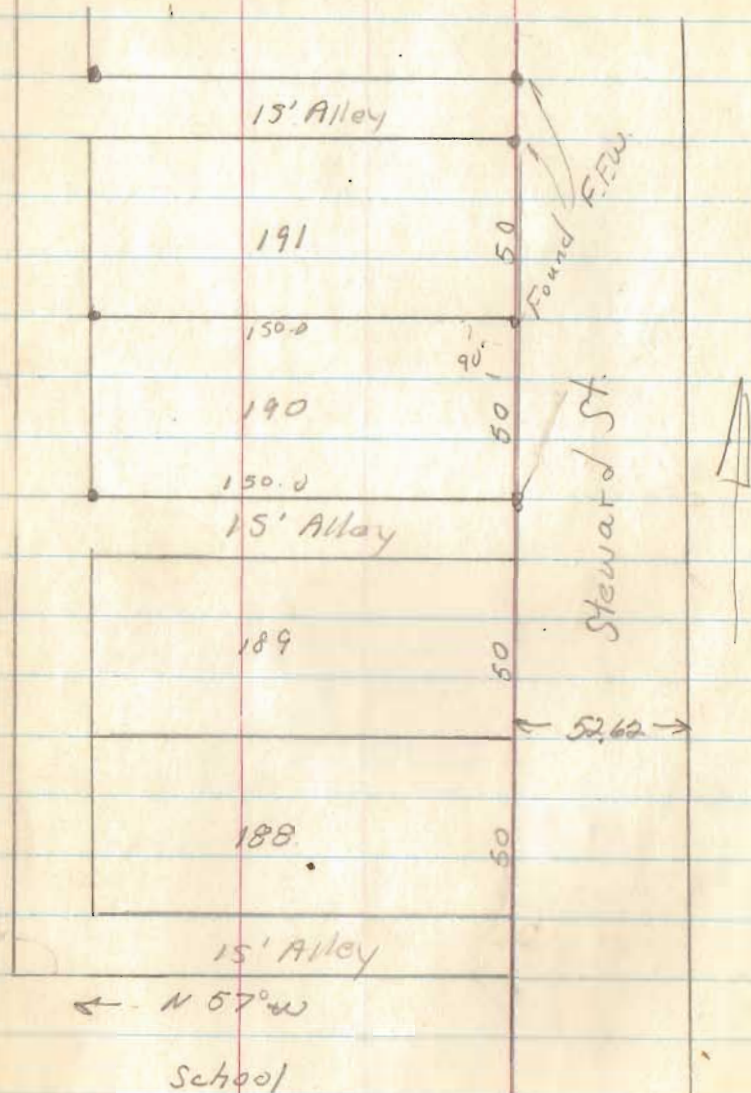 15' Alley
191
50
Found F.F.W.
150.0
90°
190
50
150.0
15' Alley
Steward St.
189
50
← 52.62 →
188
50
15' Alley
← N 57° W
School